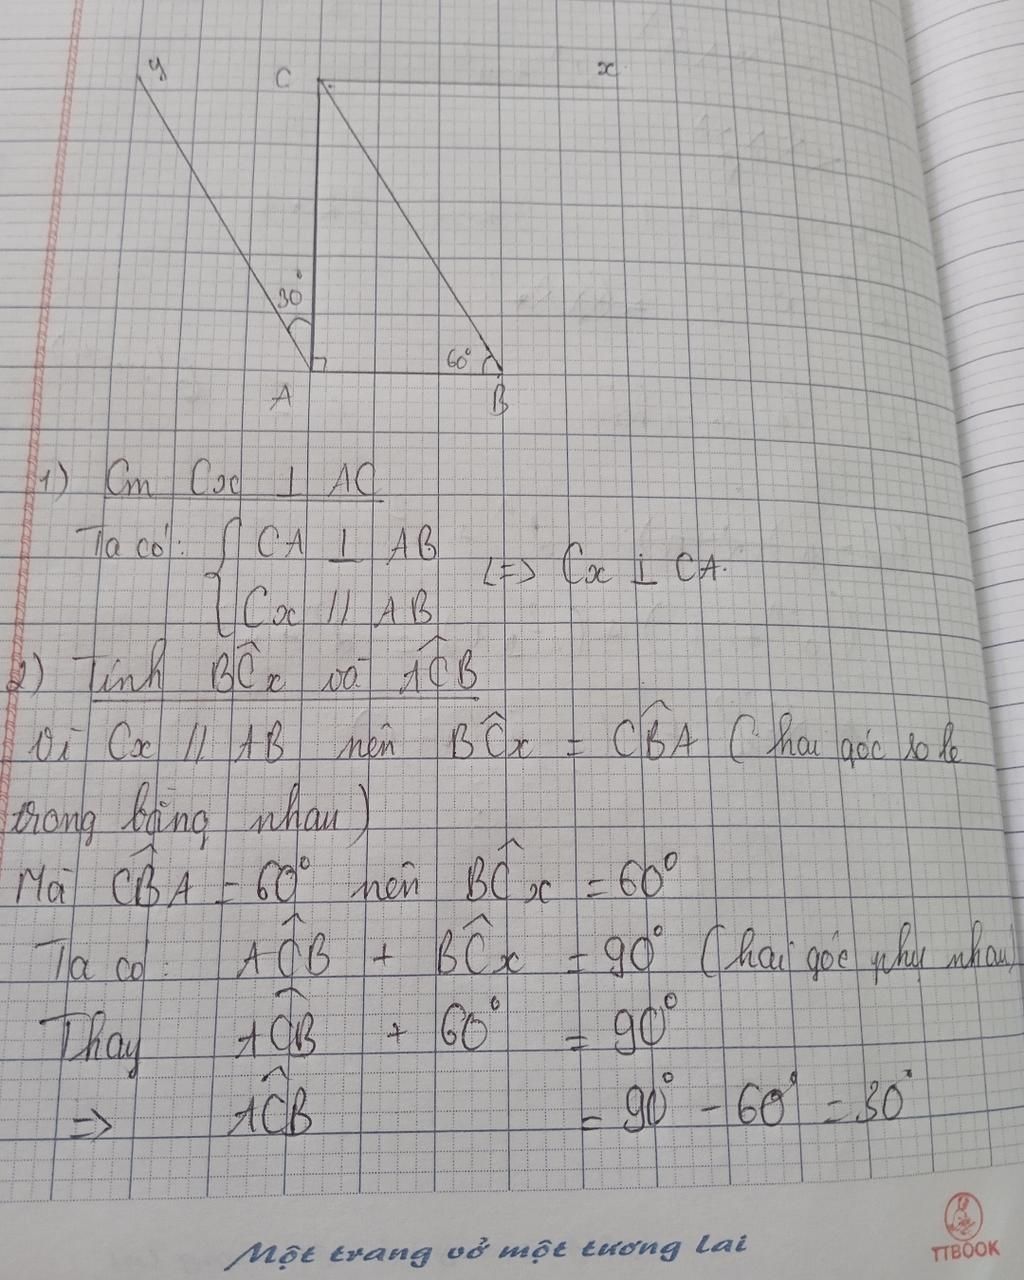 y C x
30°
60°
A B
1) Cm Cx ⊥ AC
Ta có: { CA ⊥ AB
Cx // AB <=> Cx ⊥ CA.
2) Tính BĈx và AĈB
Vì Cx // AB nên BĈx = CB̂A (hai góc so le
trong bằng nhau)
Mà CB̂A = 60° nên BĈx = 60°
Ta có: AĈB + BĈx = 90° (hai góc phụ nhau)
Thay AĈB + 60° = 90°
=> AĈB = 90° - 60° = 30°
Một trang vở một tương lai
TTBOOK